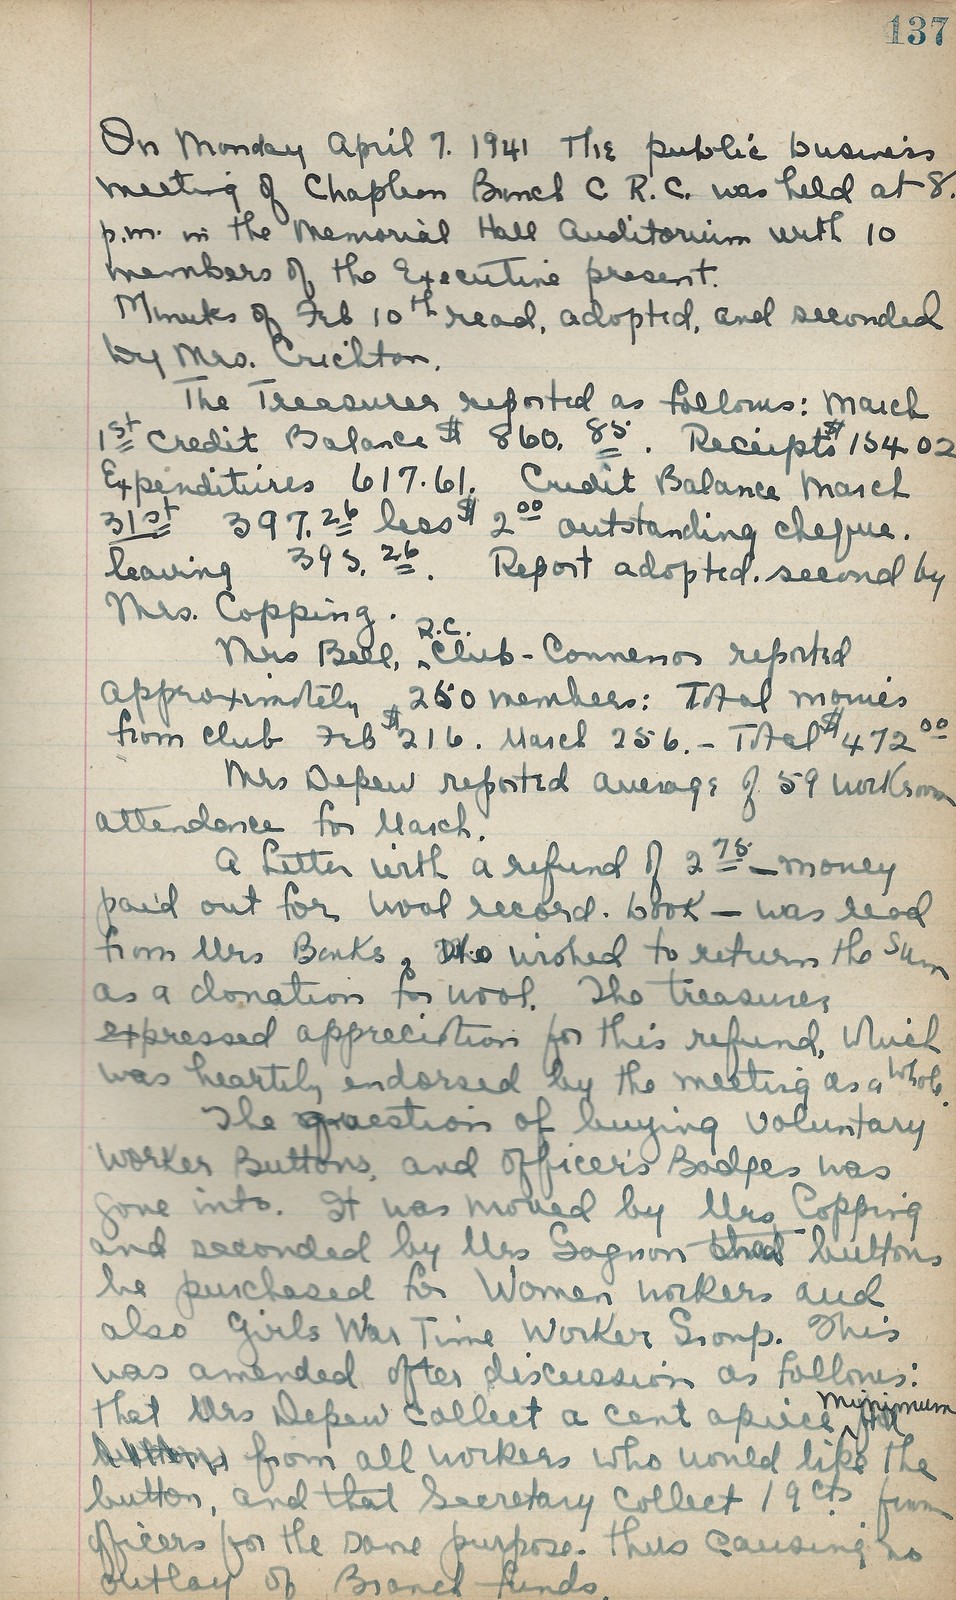 137
On Monday April 7. 1941 The public business
meeting of Chapleau Branch C R.C. was held at 8.
p.m. in the Memorial Hall Auditorium with 10
members of the Executive present.
Minutes of Feb 10th read, adopted, and seconded
by Mrs. Crichton.
The Treasurer reported as follows: March
1st Credit Balance $ 860. 85. Receipts $154.02
Expenditures 617.61. Credit Balance March
31st 397.26 less $2 00 outstanding cheque.
leaving 395.26. Report adopted. second by
Mrs. Copping.
Mrs Bell, R.C. Club-Convenor reported
approximately 250 members: Total monies
from club Feb $216. March 256. - Total $472 00
Mrs Depew reported average of 59 workroom
attendance for March.
A Letter with a refund of 2 75 - money
paid out for wool record. book - was read
from Mrs Banks, who wished to return the sum
as a donation for wool. The treasurer
expressed appreciation for this refund, which
was heartily endorsed by the meeting as a whole.
The question of buying voluntary
worker Buttons, and officer's Badges was
gone into. It was moved by Mrs Copping
and seconded by Mrs Gagnon that buttons
be purchased for Women workers and
also Girls War Time Worker Group. This
was amended after discussion as follows:
that Mrs Depew collect a cent apiece minimum
buttons from all workers who would like the
button, and that Secretary collect 19 cts from
officers for the same purpose. thus causing no
outlay of Branch funds.